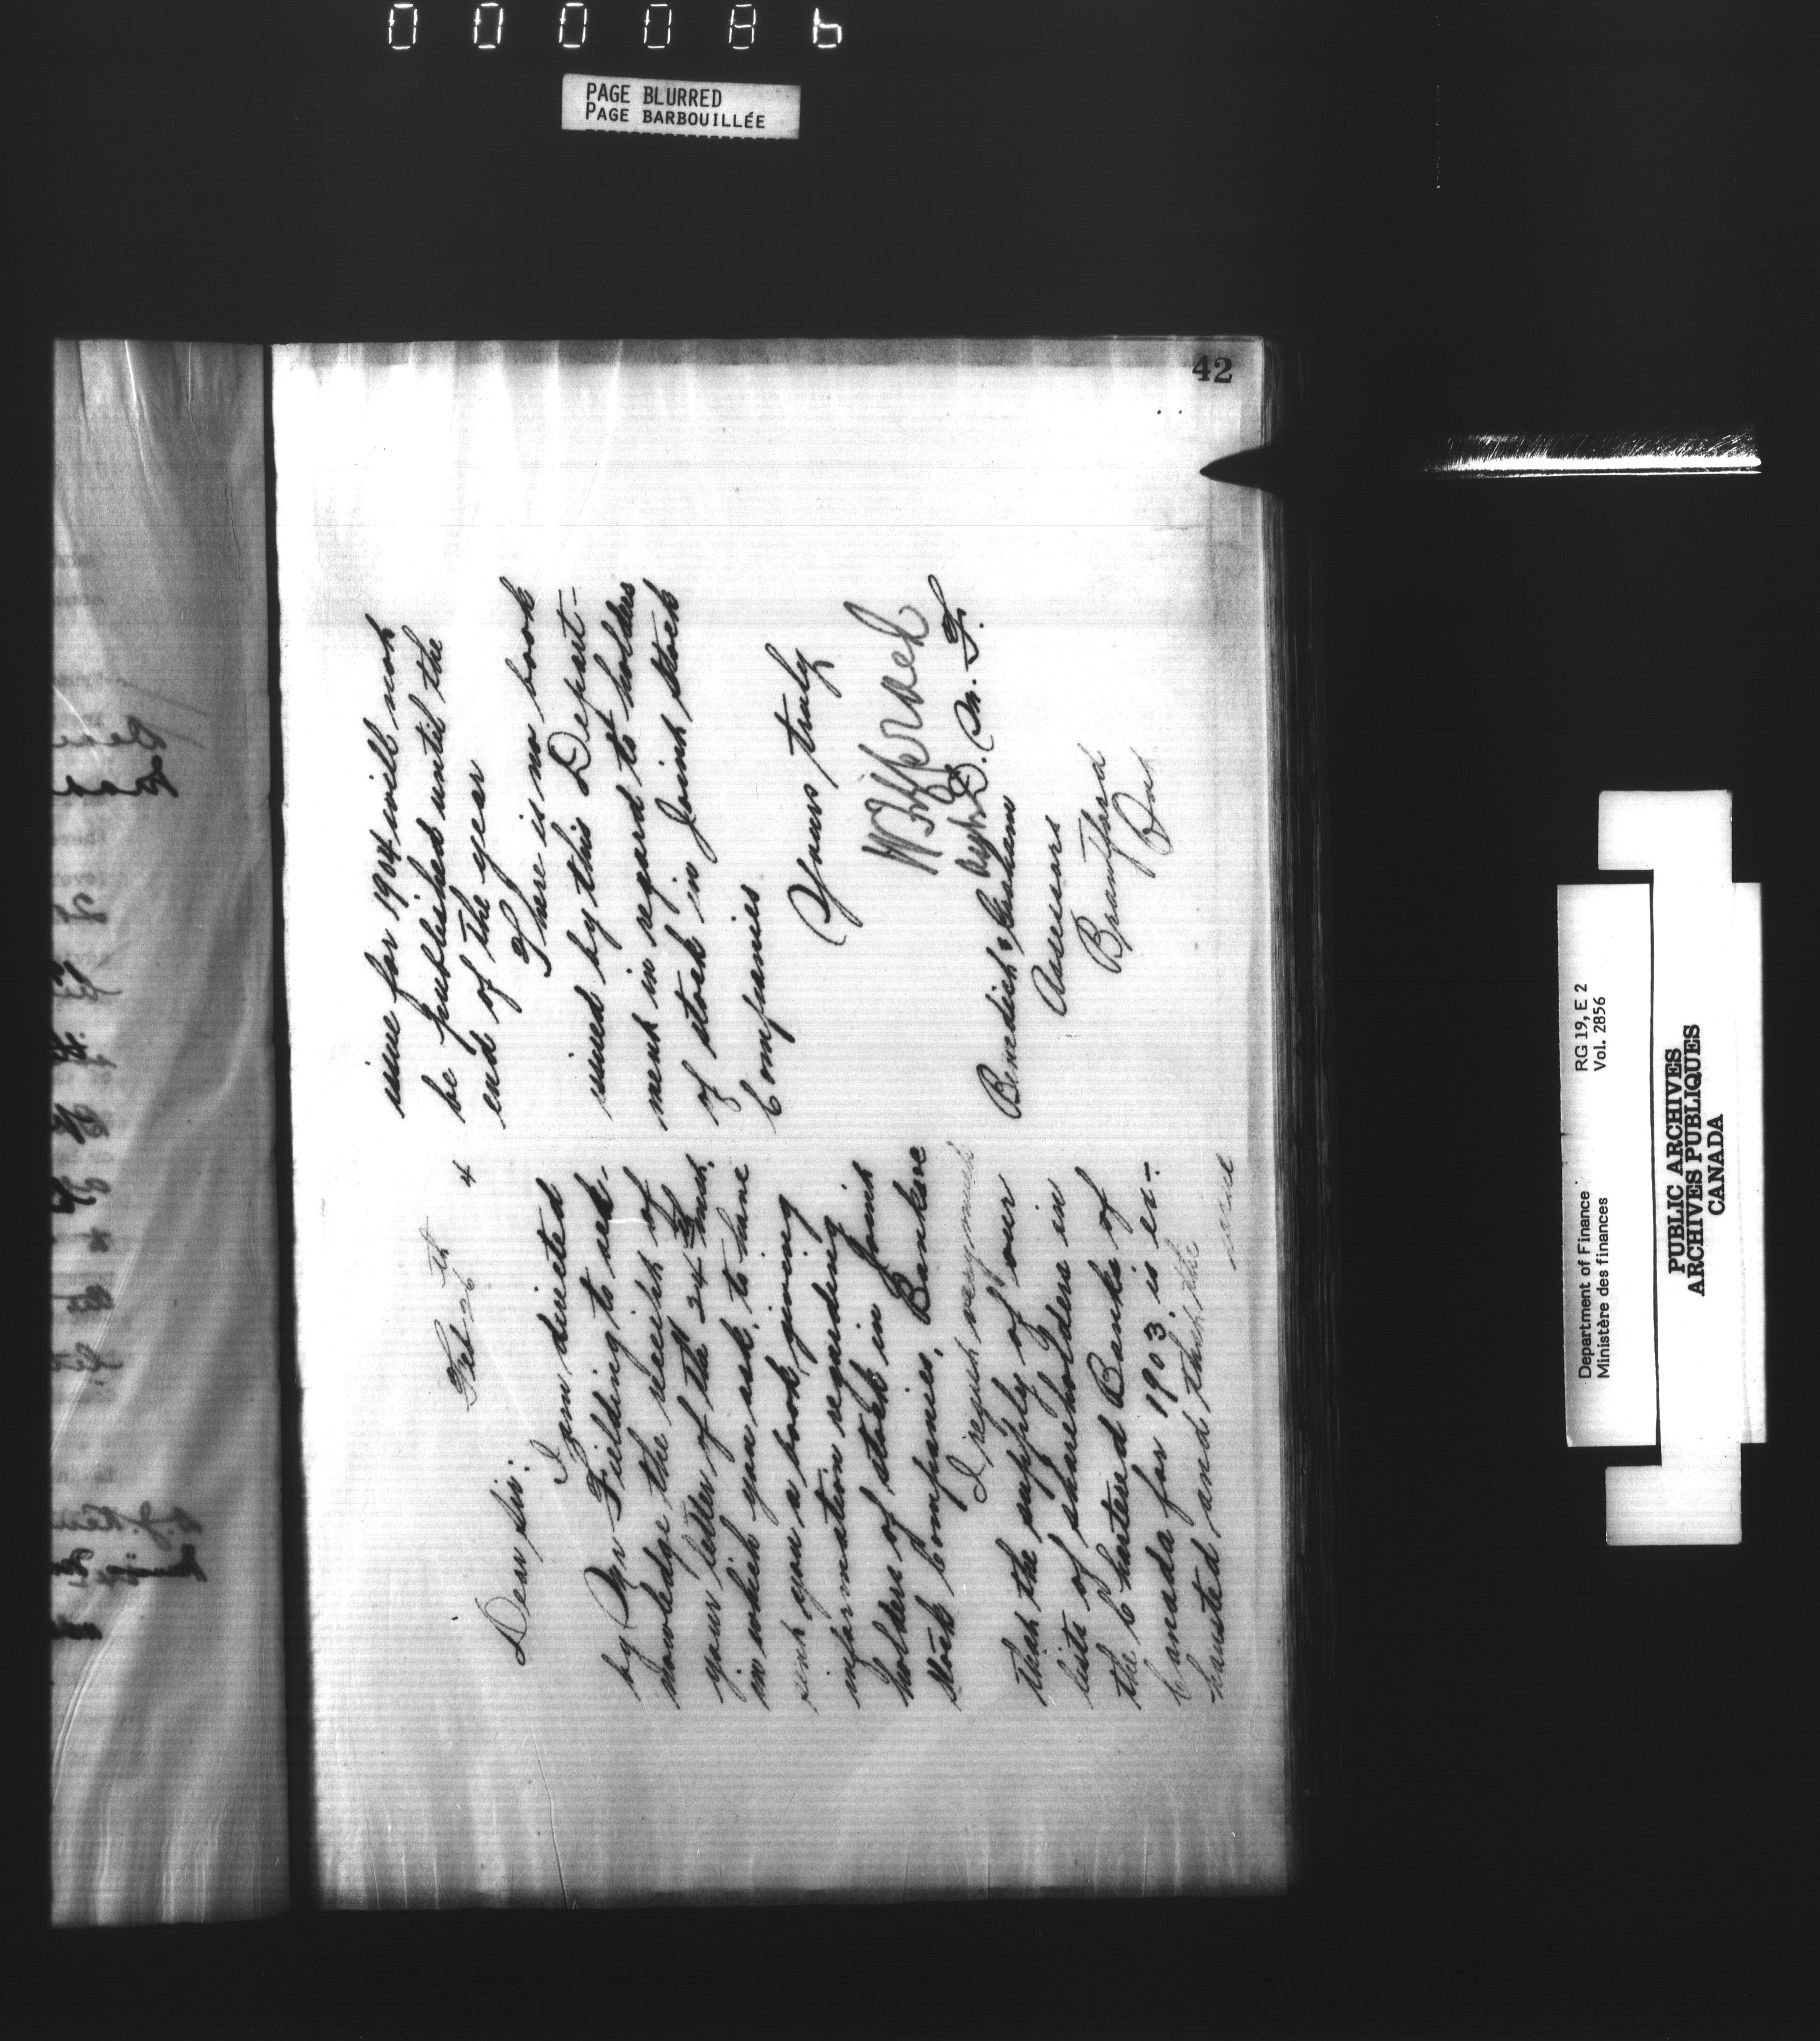 PAGE BLURRED
PAGE BARBOUILLÉE
42
Feb 26th 4
Dear Sir:
I am directed
by Mr Fielding to ack-
nowledge the receipt of
your letter of the 24th inst.
in which you ask to have
sent you a book giving
information regarding
holders of stock in Joint
Stock Companies, Banks &c
I regret very much
that the supply of our
lists of shareholders in
the Chartered Banks of
Canada for 1903 is ex-
hausted and that the
issue
issue for 1904 will not
be published until the
end of the year
There is no book
issued by this Depart-
ment in regard to holders
of stock in Joint Stock
Companies
Yours truly
D. M. F.
Benedict & Graham
Assessors
Brantford
Ont
Department of Finance
Ministère des finances
RG 19, E 2
Vol. 2856
PUBLIC ARCHIVES
ARCHIVES PUBLIQUES
CANADA